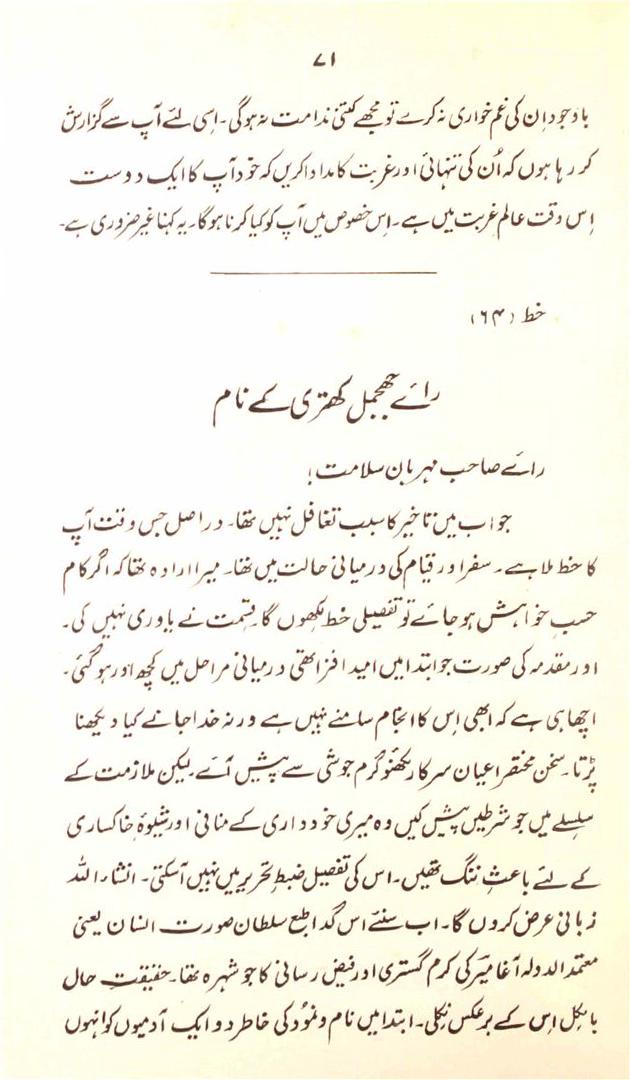 ۷۱
باوجود ان کی غم خواری نہ کرے تو مجھے کتنی ندامت نہ ہوگی۔ اسی لئے آپ سے گزارش
کر رہا ہوں کہ اُن کی تنہائی اور غربت کا مداوا کریں کہ خود آپ کا ایک دوست
اِس وقت عالمِ غربت میں ہے۔ اِس خصوص میں آپ کو کیا کرنا ہوگا۔ یہ کہنا غیر ضروری ہے۔
خط (۶۴)
رائے چھجمل کھتری کے نام
رائے صاحب مہربان سلامت!
جواب میں تاخیر کا سبب تغافل نہیں تھا۔ دراصل جس وقت آپ
کا خط ملا ہے۔ سفر اور قیام کی درمیانی حالت میں تھا۔ میرا ارادہ تھا کہ اگر کام
حسبِ خواہش ہو جائے تو تفصیلی خط لکھوں گا۔ قسمت نے یاوری نہیں کی۔
اور مقدمہ کی صورت جو ابتدا میں امید افزا تھی درمیانی مراحل میں کچھ اور ہو گئی۔
اچھا ہی ہے کہ ابھی اِس کا انجام سامنے نہیں ہے ورنہ خدا جانے کیا دیکھنا
پڑتا۔ سخن مختصر اعیان سرکار لکھنؤ گرم جوشی سے پیش آئے۔ لیکن ملازمت کے
سلسلے میں جو شرطیں پیش کیں وہ میری خود داری کے منافی اور شیوۂ خاکساری
کے لئے باعثِ ننگ تھیں۔ اس کی تفصیل ضبطِ تحریر میں نہیں آ سکتی۔ انشاء اللہ
زبانی عرض کروں گا۔ اب سنئے اس گدا طبع سلطان صورت انسان یعنی
معتمد الدولہ آغا میر کی کرم گستری اور فیض رسانی کا جو شہرہ تھا۔ حقیقتِ حال
بالکل اس کے برعکس نکلی۔ ابتدا میں نام و نمُود کی خاطر دو ایک آدمیوں کو انہوں